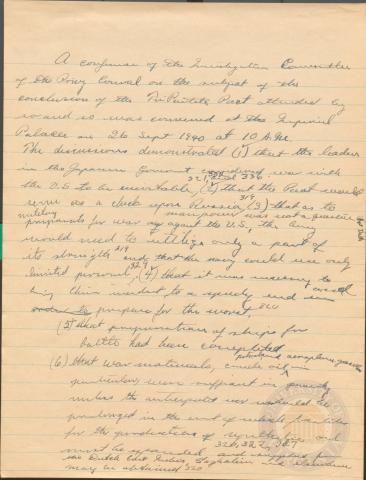 A conference of the Investigation Committee
of the Privy Council on the subject of the
conclusion of the Tri-Partite Pact attended by
so and so was convened at the Imperial
Palace on 26 Sept 1940 at 10 A.M.
The discussions demonstrated (1) that the leaders
in the Japanese Government considered war with
the U.S. to be inevitable, (2) that the Pact would
serve as a check upon Russia (3) that as to
military manpower was not a question
proposals for war against the U.S. the Army
would need to utilize only a part of
its strength and that the navy could use only
limited personnel, (4) that it was necessary to
bring China incident to a speedy end
prepare for the worst,
(5) that preparations of ships for
battle had been completed
(6) that war materials, crude oil in
particular, were sufficient in
unless the anticipated war would be
prolonged in the event of which facilities
for the production of synthetic
must be expanded and
the Dutch East Indies, Saghalien and elsewhere
may be obtained 320